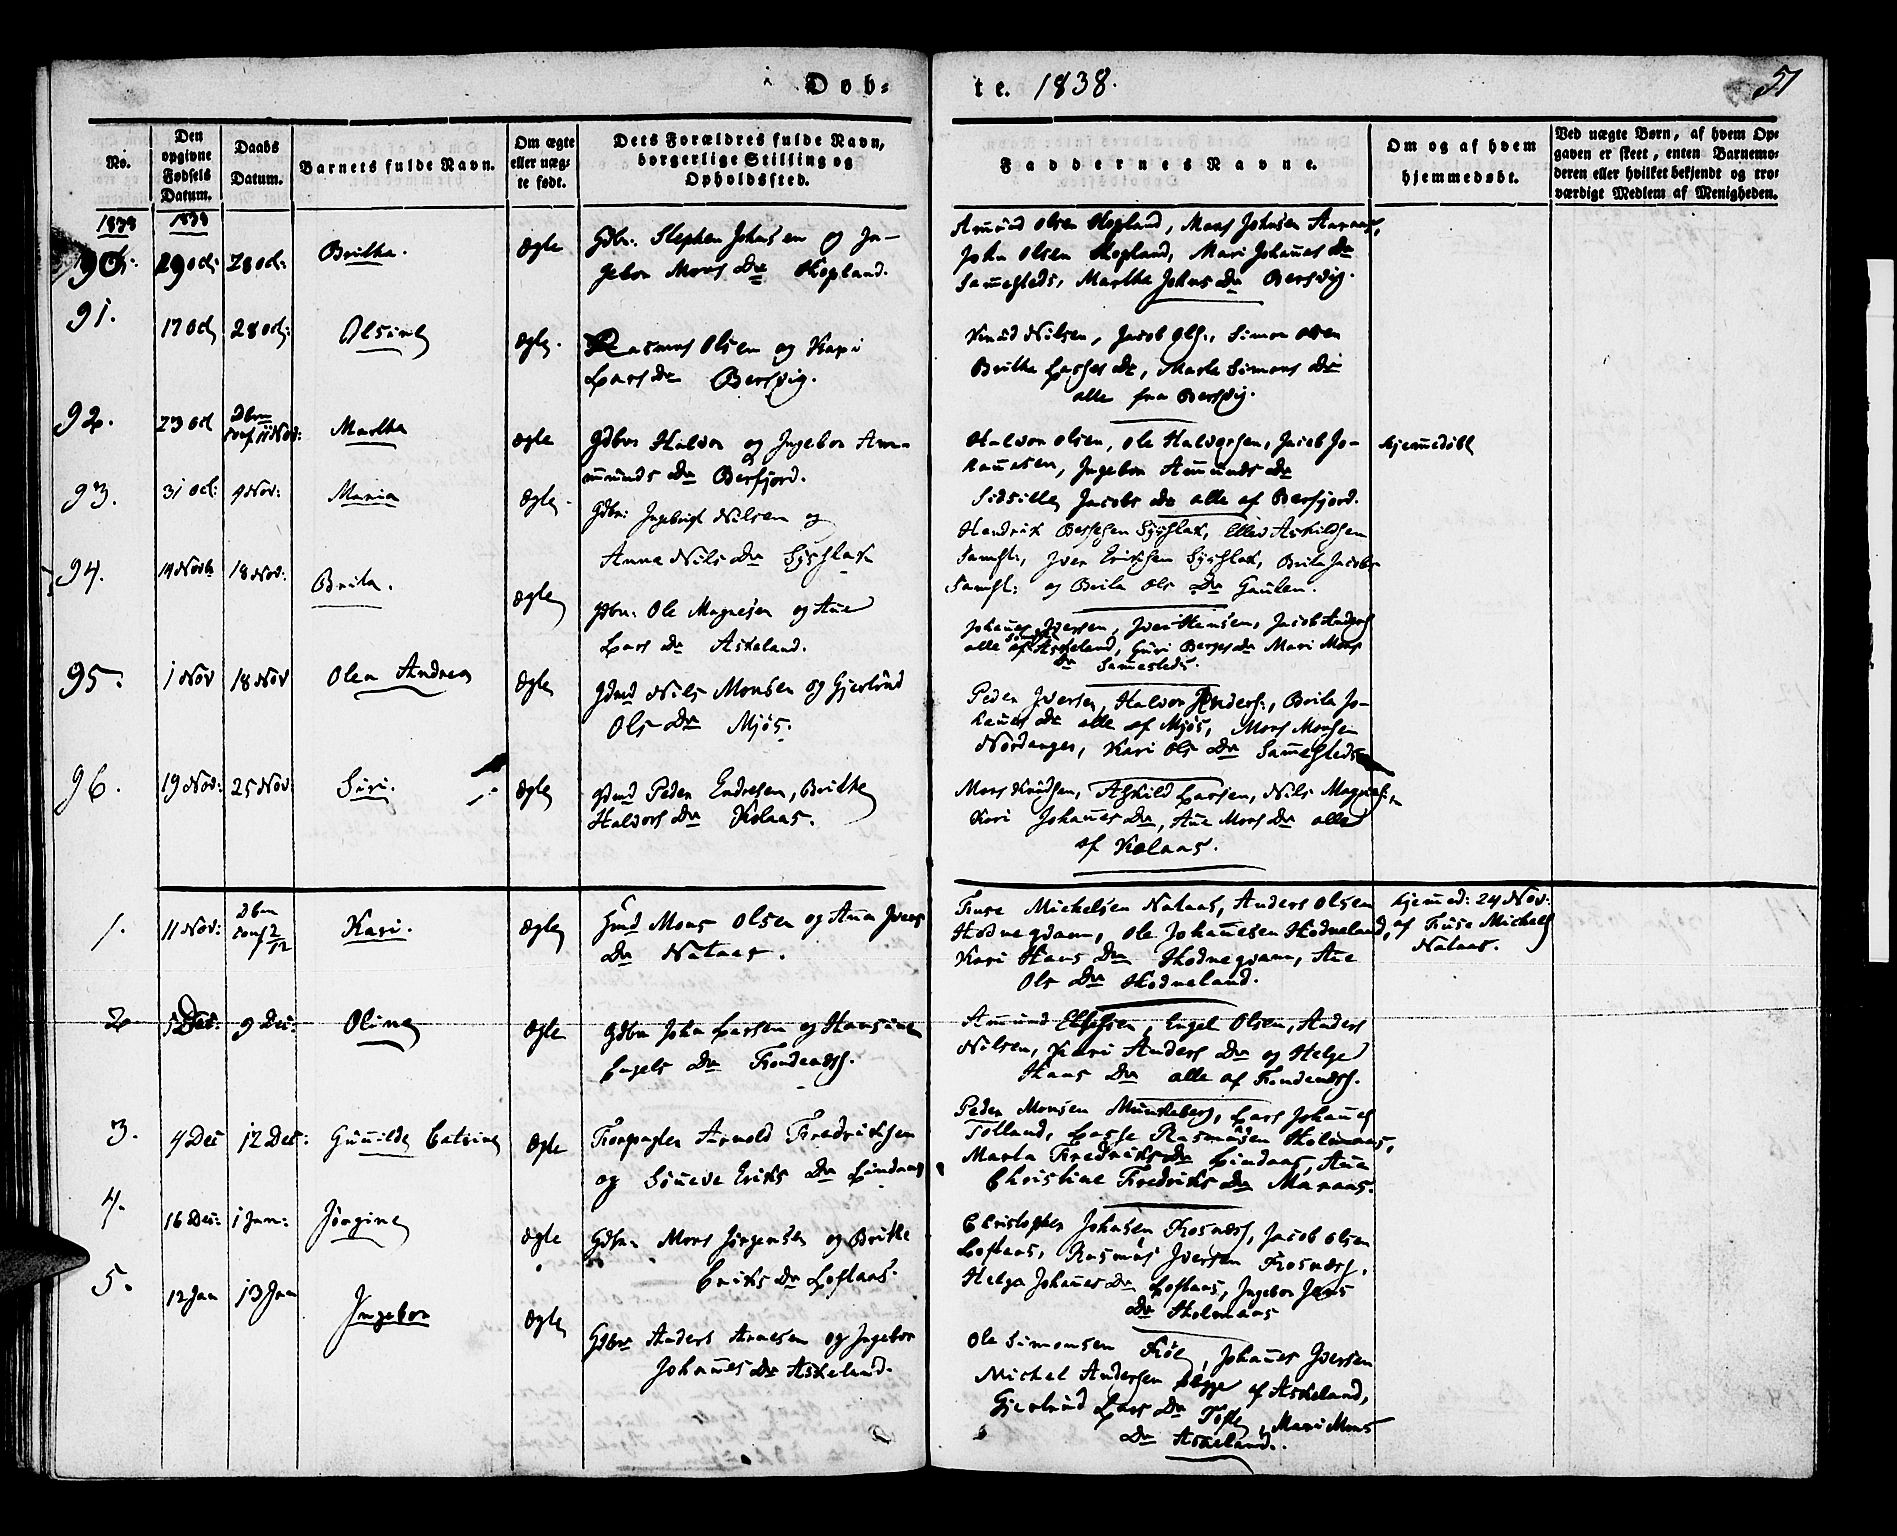 Døb-
te. 1838.
51
No.
Den opgivne Fødsels Datum.
Daabs Datum.
Barnets fulde Navn.
Om ægte eller uæg-te født.
Dets Forældres fulde Navn, borgerlige Stilling og Opholdssted.
Faddernes Navne.
Om og af hvem hjemmedøbt.
Ved uægte Børn, af hvem Op-
gaven er skeet, enten Barnemo-
deren eller hvilket bekjendt og tro-
værdigt Medlem af Menigheden.
1838 1838
90. 29 Oct: 28 Oct: Britha. Ægte
Gdbr: Stephen Johnsen og In-
gebor Mons Dr Hopland.
Amund Olsen Hopland, Mons Johnsen
John Olsen Hopland, Mari Johannes Dr
Sammesteds, Martha Johns Dr Bersvig.
91. 17 Oct 28 Oct: Olsine Ægte
Rasmus Olsen og Kari
Lars Dr Bersvig.
Knud Nilsen, Jacob Ols:, Simon Olsen
Britha Lasses Dr, Marte Simons Dr
alle fra Bersvig.
92. 23 Oct Dbn conf 11 Nov: Martha Ægte
Gdbr Halvor og Ingebor Am-
munds Dr Berfjord.
Halvor Olsen, Ole Halvorsen, Jacob Jo-
hannesen, Ingebor Amunds Dr
Sidsille Jacobs Dr alle af Berfjord.
Hjemmedøbt
93. 31 Oct: 4 Nov: Maria Ægte
Gdbr: Ingebrigt Nilsen og
Anna Nils Dr Syslak
Hendrik Syslak, Ellev Askildsen
Samst:, Iver Erichsen Syslak, Brita Jacobs
Samst: og Brita Ols Dr Gaulen.
94. 14 Novb 18 Nov: Brita. Ægte
Gdbr: Ole Magnesen og Ane
Lars Dr Askeland.
Johannes Iversen, Iver Hansen, Jacob Anders
alle af Askeland, Guri Berges Dr Mari Mons
Dr Sammesteds.
95. 1 Nov 18 Nov Olea Andrea Ægte
Gdmd Nils Monsen og Gjertrud
Ols Dr Mjøs.
Peder Iversen, Halvor Anders:, Brita Jo-
hannes Dr alle af Mjøs, Mons Monsen
Nordanger, Kari Ols Dr Sammesteds
96. 19 Nov: 25 Nov: Siri. Ægte
Gdmd Peder Endresen, Brithe
Halvors Dr Kolaas.
Mons Knudsen, Askild Larsen, Nils Magnes:
Kari Johannes Dr, Ane Mons Dr alle
af Kolaas.
1. 11 Nov: Dbn conf 2/12 Kari. Ægte
Gmd Mons Olsen og Anna Ivers
Dr Nataas.
Truse Michelsen Nataas, Anders Olsen
Hodnegvam, Ole Johannesen Hodneland,
Kari Hans Dr Hodnegvam, Ane
Ols Dr Hodneland.
Hjemmed: 24 Nov:
af Truse Michels
Nataas.
2 5 Dec: 9 Dec: Oline Ægte
Gdbr John Larsen og Hansine
Engels Dr
Amund Engel Olsen, Anders
Nilsen, Kari Anders Dr og Helge
Hans Dr alle af
3. 4 Dec 12 Dec: Gunnilde Catrine Ægte
Arnold Fredriksen
og Sinneve Eriks Dr Lindaas
Peder Monsen Munkeberg, Lars Johannes
Totland, Lasse Rasmusen Holmaas,
Marta Fredriks Dr Lindaas, Ane
Christine Fredriks Dr Maraas.
4. 16 Dec: 1 Jan: Jørgine Ægte
Gdbr: Mons Jørgensen og Brithe
Eriks Dr Loftaas.
Christopher Johnsen Fosnæss, Jacob Olsen
Loftaas, Rasmus Iversen Fosnæss,
Helga Johannes Dr Loftaas, Ingebor Jens
Dr Holmaas
5. 12 Jan 13 Jan Ingebor Ægte
Gdbr Anders Arnesen og Ingebor
Johannes Dr Askeland.
Ole Simonsen Johannes Iversen
Michel Andersen begge af Askeland,
Gjertrud Lars Dr Mari Mons
Dr Askeland.